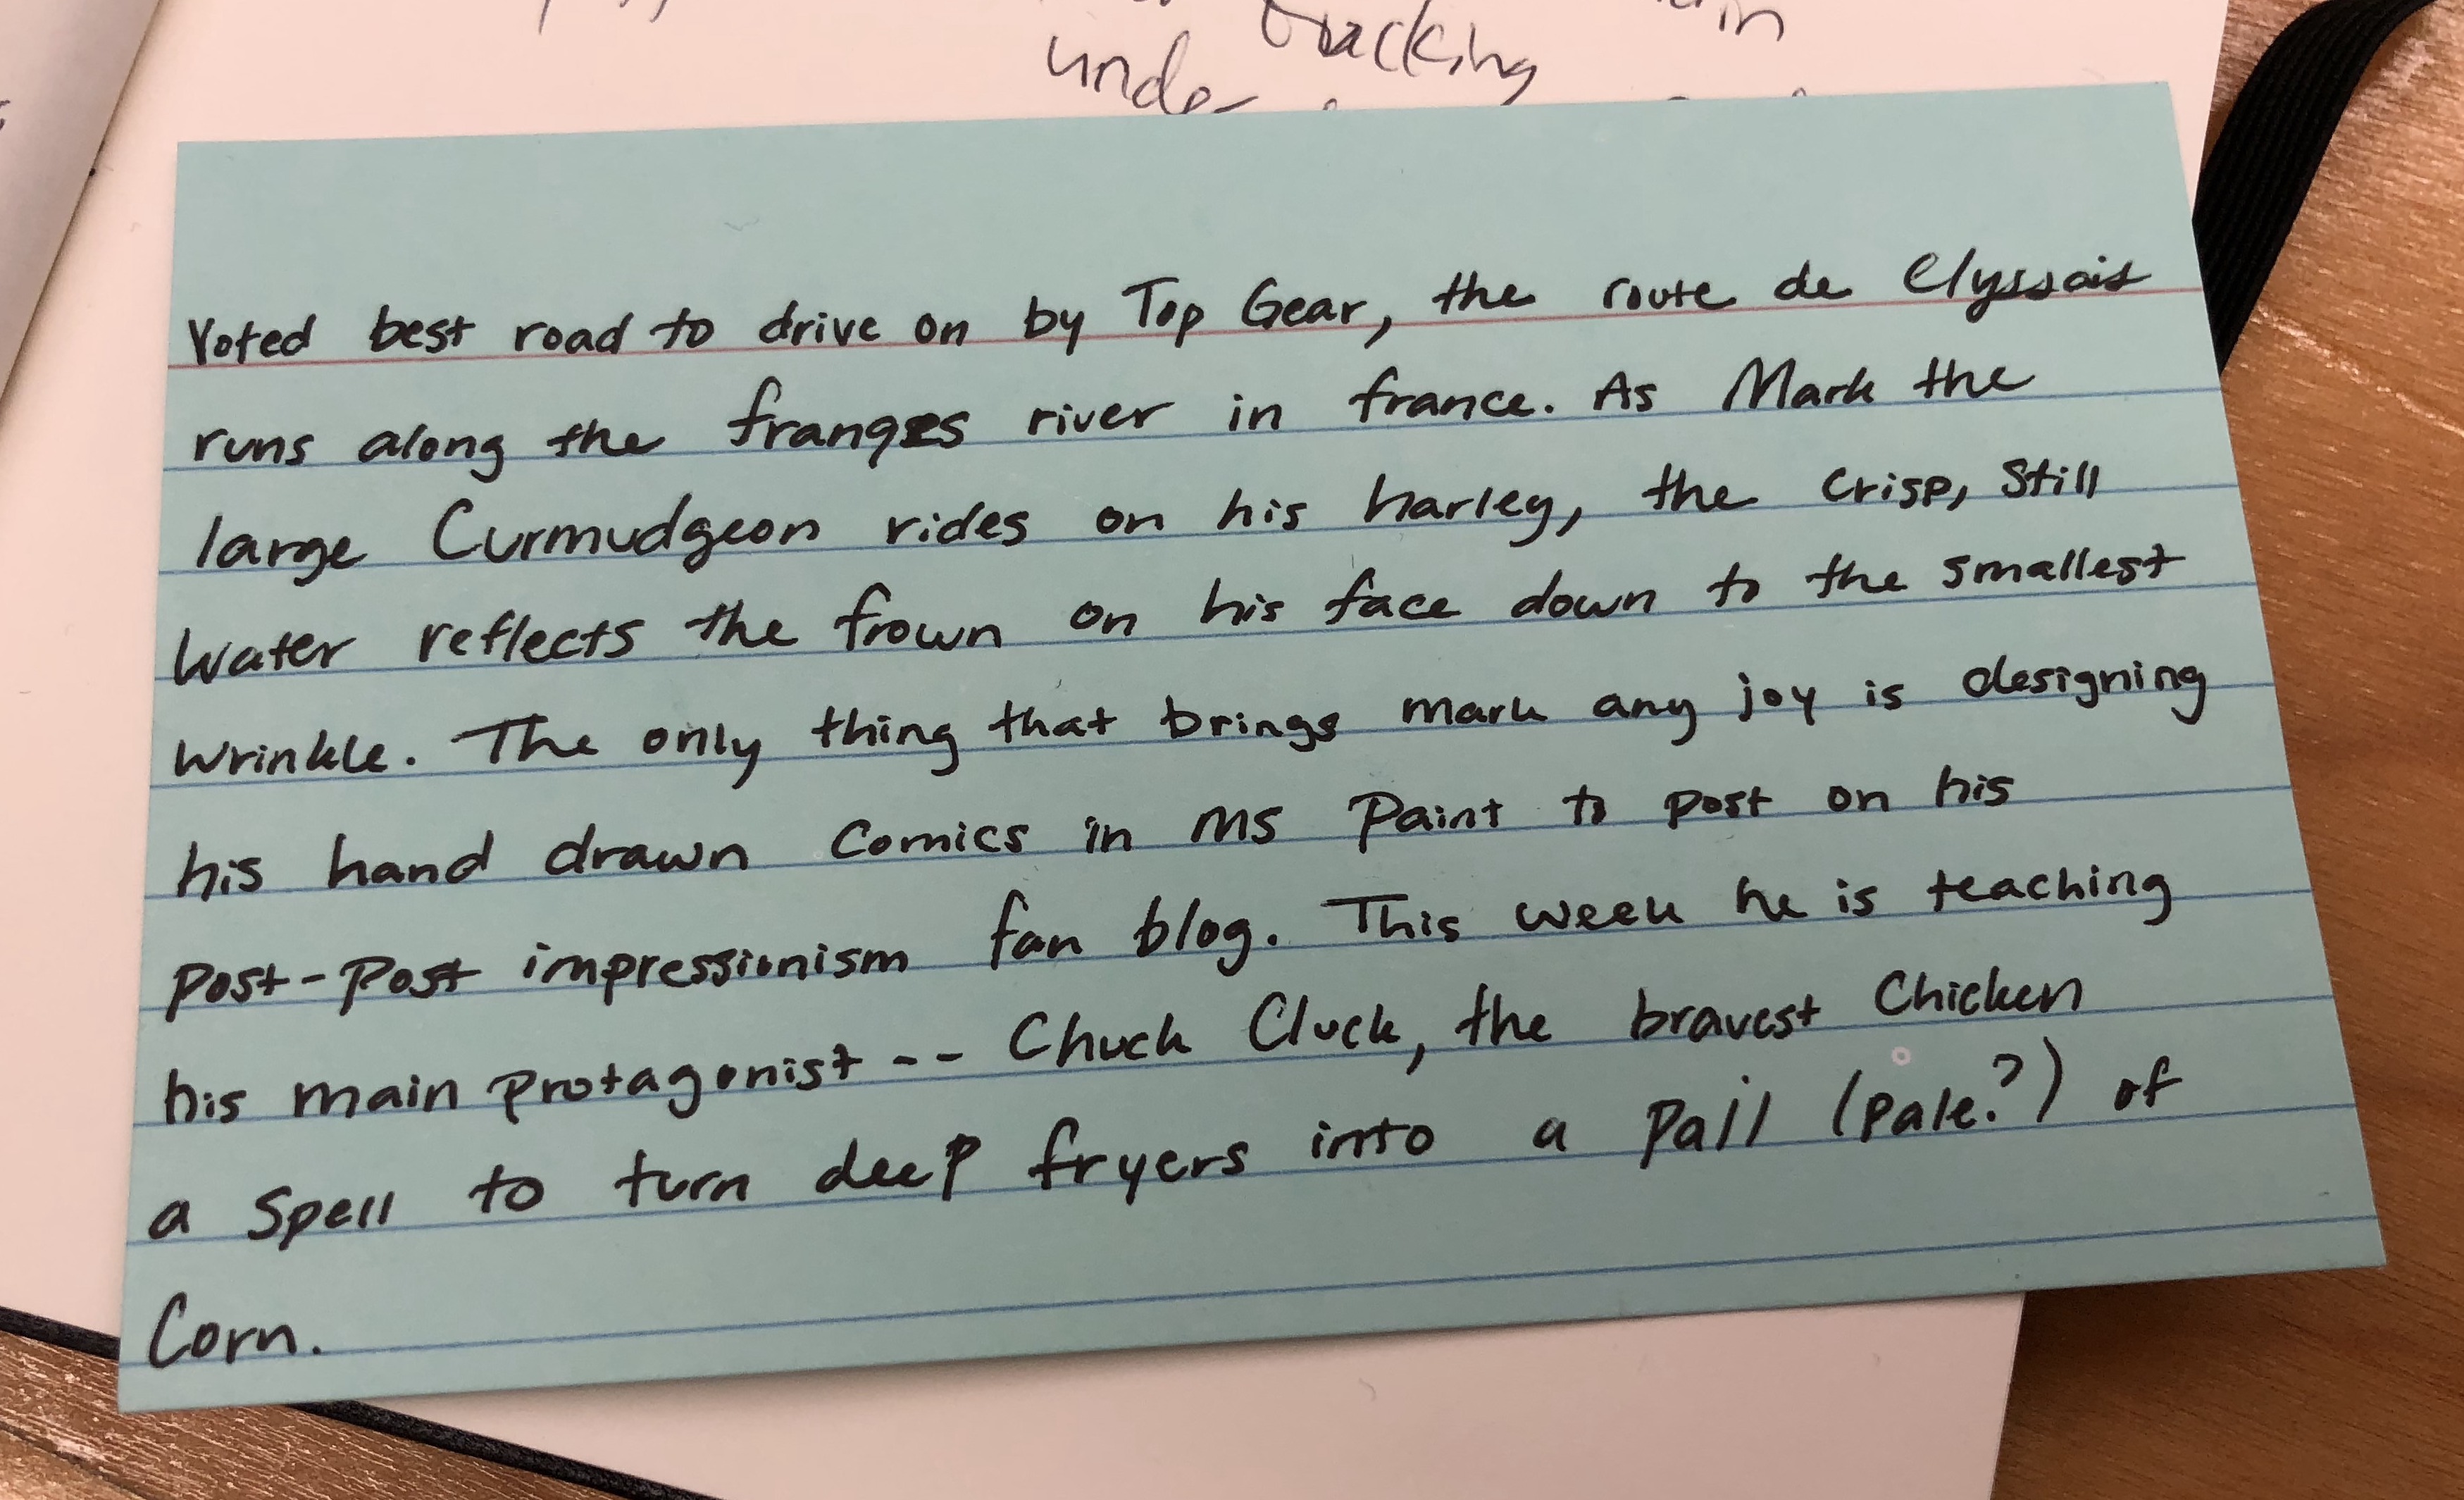 tracking
in
under
Voted best road to drive on by Top Gear, the route de Elyssois
runs along the franges river in france. As Mark the
large Curmudgeon rides on his harley, the crisp, still
water reflects the frown on his face down to the smallest
wrinkle. The only thing that brings mark any joy is designing
his hand drawn comics in MS Paint to post on his
post-post impressionism fan blog. This week he is teaching
his main protagonist -- Chuck Cluck, the bravest Chicken
a spell to turn deep fryers into a pail (pale?) of
Corn.